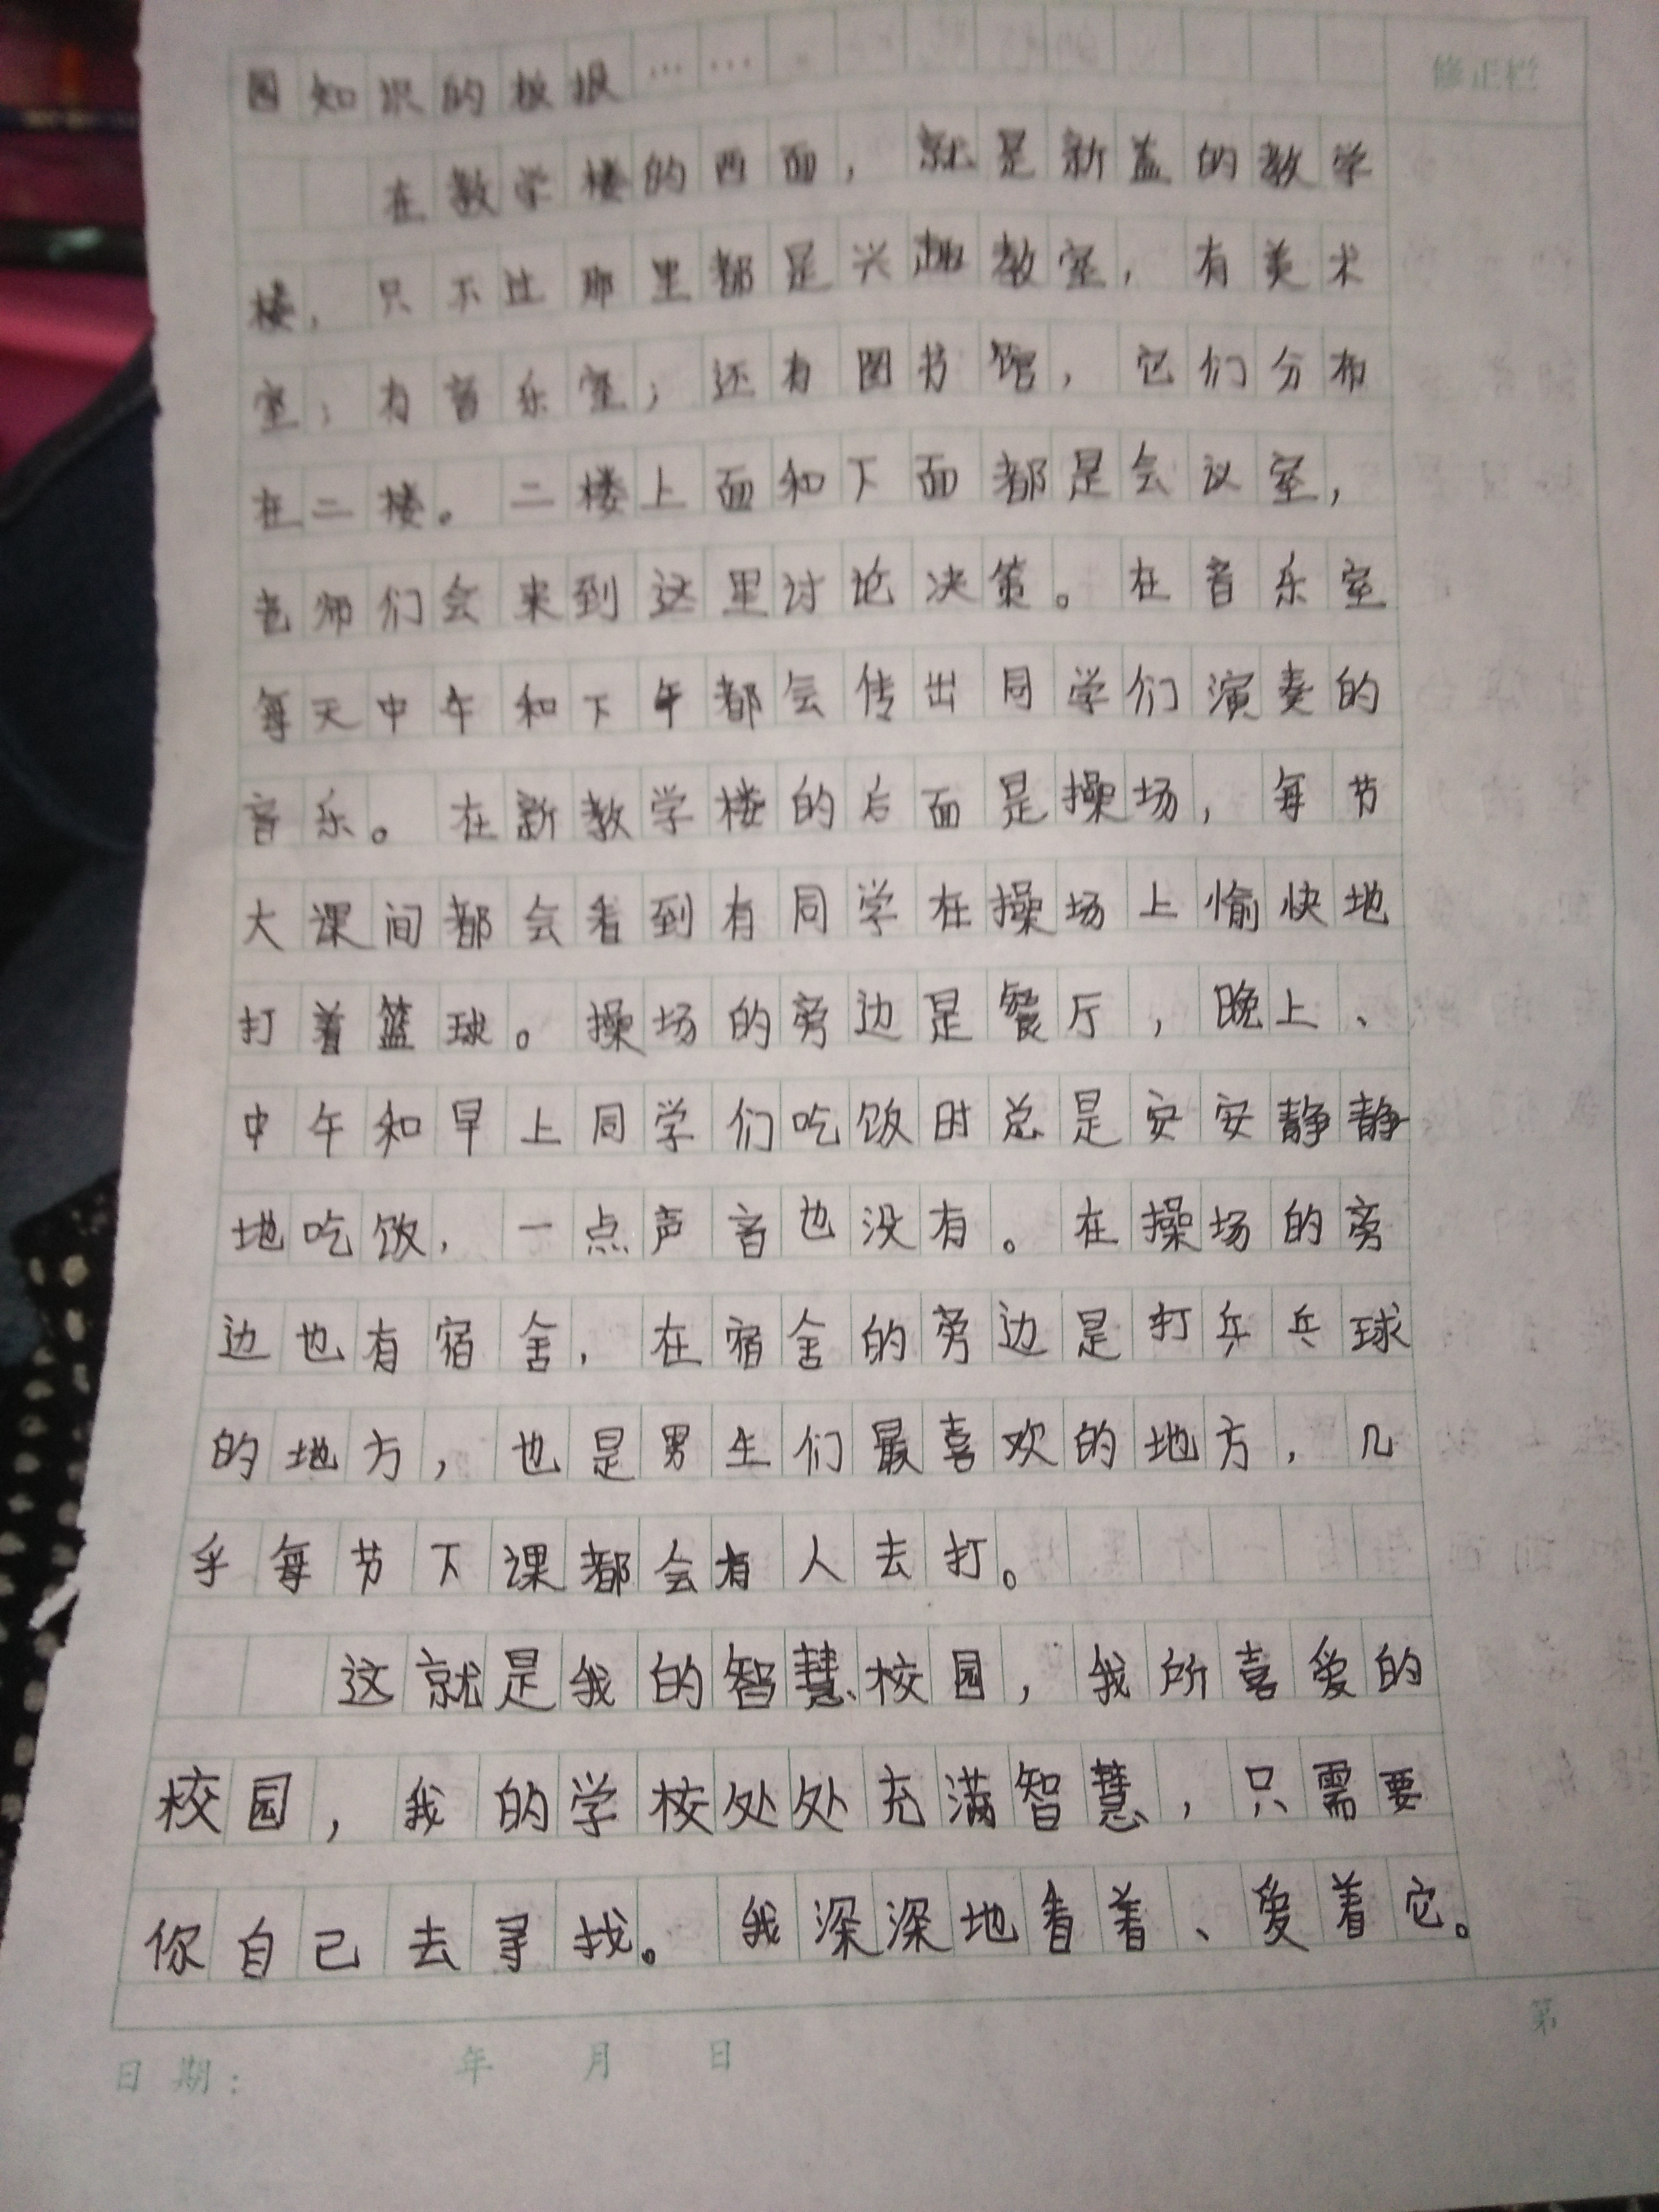 园知识的板报……。
修正栏
在教学楼的西面，就是新盖的教学
楼，只不过那里都是兴趣教室，有美术
室；有音乐室；还有图书馆，它们分布
在二楼。二楼上面和下面都是会议室，
老师们会来到这里讨论决策。在音乐室
每天中午和下午都会传出同学们演奏的
音乐。在新教学楼的后面是操场，每节
大课间都会看到有同学在操场上愉快地
打着篮球。操场的旁边是餐厅，晚上、
中午和早上同学们吃饭时总是安安静静
地吃饭，一点声音也没有。在操场的旁
边也有宿舍，在宿舍的旁边是打乒乓球
的地方，也是男生们最喜欢的地方，几
乎每节下课都会有人去打。
这就是我的智慧校园，我所喜爱的
校园，我的学校处处充满智慧，只需要
你自己去寻找。我深深地看着、爱着它。
日期： 年 月 日
第